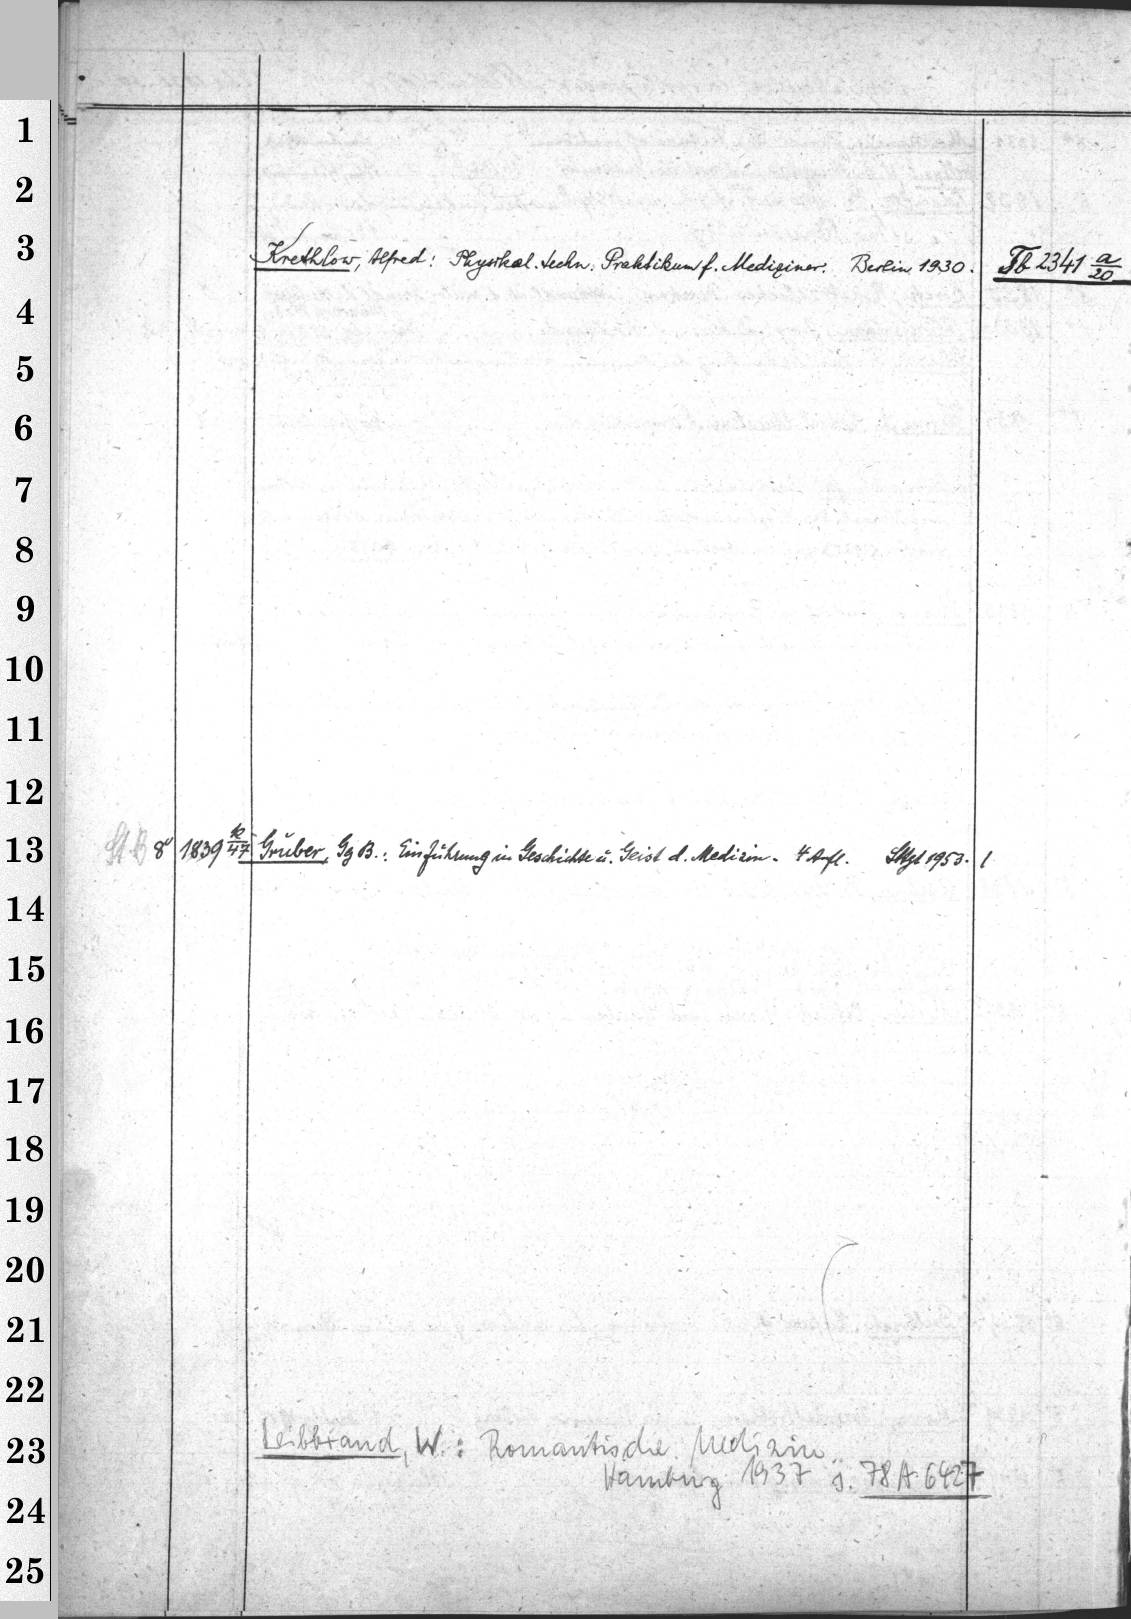 1
2
3 Krethlow, Alfred: Physikal. techn. Praktikum f. Mediziner. Berlin 1930. Tb 2341 a/20
4
5
6
7
8
9
10
11
12
13 St B 8° 1839 k/47 Gruber, Gg B.: Einführung in Geschichte u. Geist d. Medizin. 4 Aufl. Sttgt 1953. 1
14
15
16
17
18
19
20
21
22
23 Leibbrand, W.: Romantische Medizin
Hamburg 1937 s. 78 A 6427
24
25